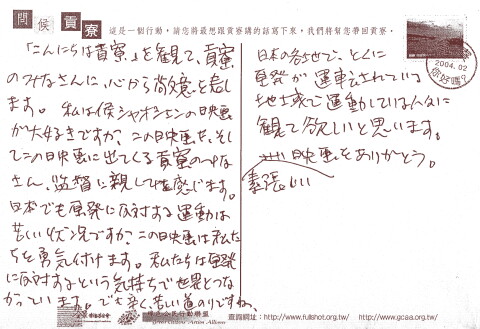 問候貢寮
這是一個行動，請您將最想跟貢寮講的話寫下來，我們將幫您帶回貢寮．
「こんにちは貢寮」を観て、貢寮
のみなさんに、心から尚敬意を表し
ます。私は侯シャオシェンの映画
が大好きですが、この映画を、そし
てこの映画に出てくる貢寮のみな
さん、監督に親しみを感じます。
日本でも原発に反対する運動は
苦しい状況ですが、この映画は私た
ちを勇気付けます。私たちは原発
に反対するという気持ちで世界とつな
がっています。でも辛く、苦しい道のりですね。
日本の各地で、とくに
原発が運転されている
地域で運動している人々に
観て欲しいと思います。
映画をありがとう。
2004.02
你好嗎?
綠色公民行動聯盟
Green Citizens' Action Alliance
查詢網址：http://www.fullshot.org.tw/ http://www.gcaa.org.tw/